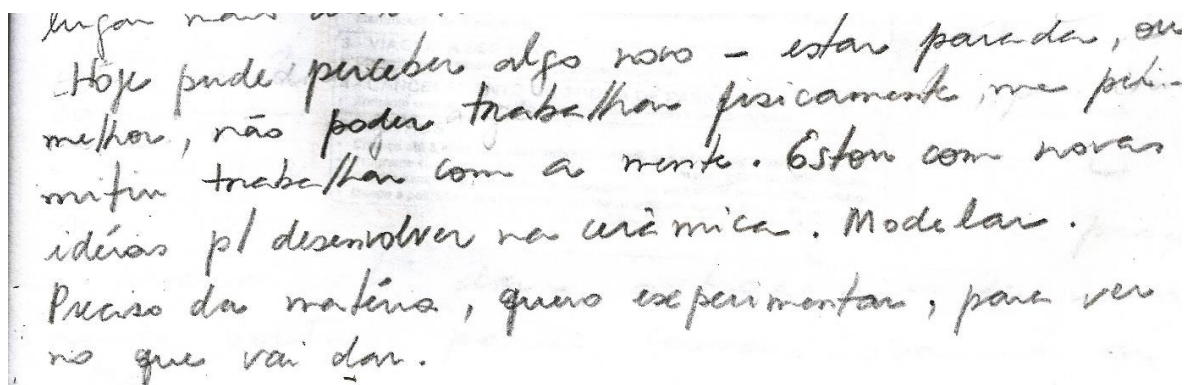 lugar mais
Hoje pude perceber algo novo – estar parada, ou
melhor, não poder trabalhar fisicamente, me per-
mitiu trabalhar com a mente. Estou com novas
idéias p/ desenvolver na cerâmica. Modelar.
Preciso da matéria, quero experimentar, para ver
no que vai dar.